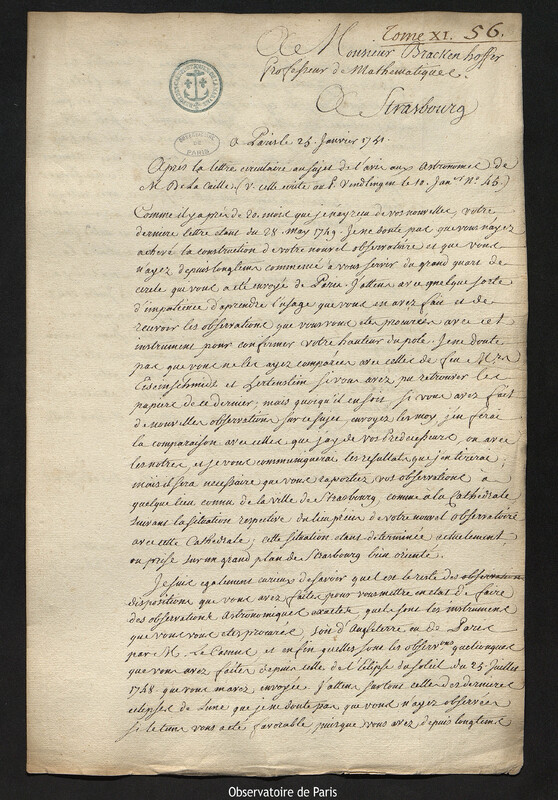 Tome XI. 56.
A Monsieur Brackenhoffer
Professeur de Mathematique.
A Strasbourg
A Paris le 25 Janvier 1751.
Après la lettre circulaire au sujet de l'avis aux Astronomes de
M. De la Caille (V. celle ecrite au P. Vendlingen le 10. Janer No 45.)
Comme il y a près de 20. mois que je n'ay recu de vos nouvelles, votre
derniere lettre étant du 28. May 1749. Je ne doute pas que vous n'ayez
achevé la construction de votre nouvel observatoire et que vous
n'ayez depuis longtems commencé a vous servir du grand quart de
cercle qui vous a été envoyé de Paris. J'attens avec quelque sorte
d'impatience d'aprendre l'usage que vous en avez fait et de
recevoir les observations que vous vous etes procurées avec cet
instrument pour confirmer votre hauteur du pole. Je ne doute
pas que vous ne les ayez comparées avec celles de feu Mrs
Eisenschmidt et Lertenstein si vous avez pu retrouver les
papiers de ce dernier; mais quoiqu'il en soit, si vous avez fait
de nouvelles observations sur ce sujet, envoyez les moy, j'en ferai
la comparaison avec celles que j'ay de vos Predecesseurs, ou avec
les notres, et je vous communiquerai les resultats que j'en tirerai;
mais il sera necessaire que vous raportiez vos observations à
quelque lieu connu de la ville de Strasbourg, comme à la Cathedrale
suivant la situation respective du lieu précis de votre nouvel observatoire
avec cette Cathedrale; cette situation étant determinée actuellement
ou prise sur un grand plan de Strasbourg bien orienté.
Je suis egalement curieux de savoir quel est le reste des observations
dispositions que vous avez faites pour vous mettre en etat de faire
des observations Astronomiques exactes, quels sont les instrumens
que vous vous etes procurés, soit d'Angleterre ou de Paris
par M. Le Camus et enfin quelles sont les observons quelconques
que vous avez faites depuis celle de l'éclipse du soleil du 25. Juillet
1748. que vous m'avez envoyée. J'attens surtout celles des dernieres
eclipses de Lune que je ne doute pas que vous n'ayez observées
si le tems vous a été favorable, puisque vous avez depuis longtems
Observatoire de Paris